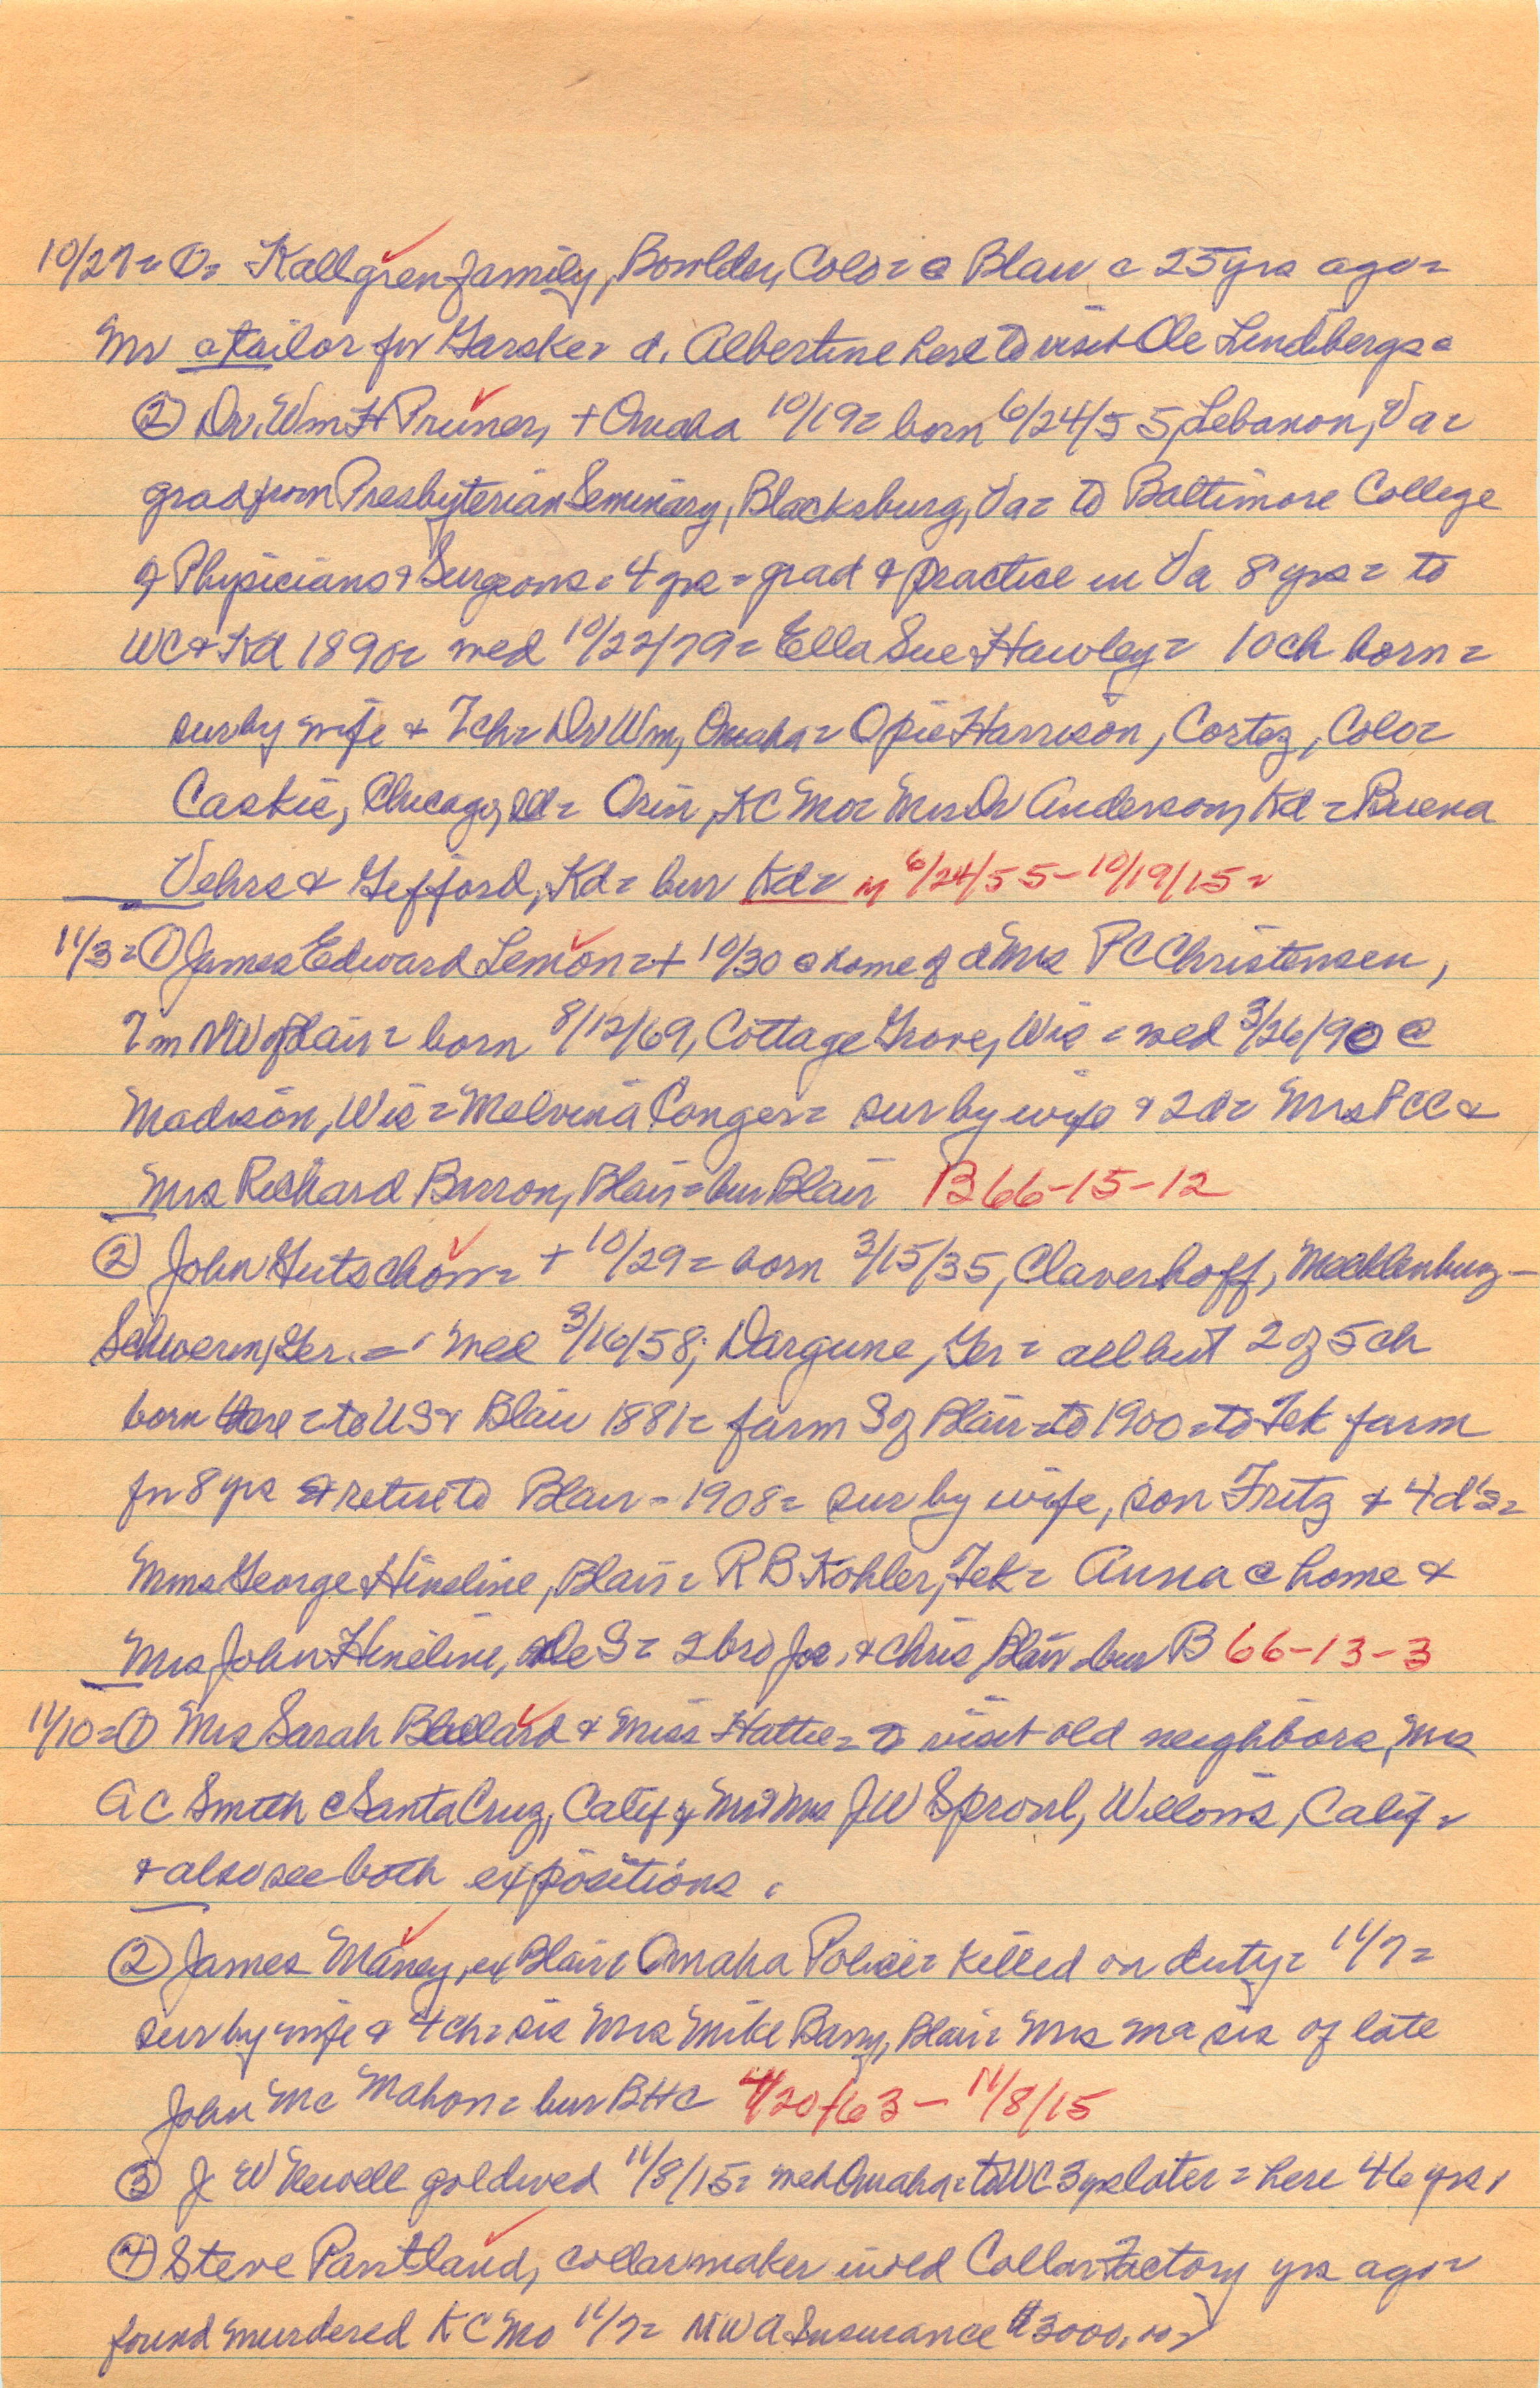 10/27= ①= Kallgren family, Boulder, Colo= @ Blair @ 25 yrs ago=
Mr a tailor for Garske= d. Albertine here to visit Ole Lindbergs=
② Dr. Wm H Pruner, + Omaha 10/19= born 6/24/55, Lebanon, Va=
grad from Presbyterian Seminary, Blacksburg, Va= to Baltimore College
of Physicians & Surgeons= 4 yrs= grad & practice in Va 8 yrs= to
WC & Kd 1890= wed 10/22/79= Ella Sue Hawley= 10 ch born=
sur by wife & 7 ch= Dr Wm, Omaha= Opie Harrison, Cortez, Colo=
Caskie, Chicago, Ill= Orin, KC Mo= Mrs Dr Anderson, Kd= Buena
Vehrs & Gefford, Kd= bur Kd= 6/24/55-10/19/15=
11/3= ① James Edward Lemon= + 10/30 @ home of d Mrs P C Christensen,
7 m NW of Blair= born 8/12/69, Cottage Grove, Wis= wed 3/26/90 @
Madison, Wis= Melvina Conger= sur by wife & 2 d= Mrs PCC &
Mrs Richard Barron, Blair= bur Blair B 66-15-12
② John Gutschow= + 10/29= born 3/15/35, Claverhoff, Mecklenburg-
Schwerin, Ger.= wed 3/16/58, Dargune, Ger= all but 2 of 5 ch
born there= to US & Blair 1881= farm S of Blair= to 1900= to Tek farm
for 8 yrs & retire to Blair= 1908= sur by wife, son Fritz & 4 d's=
Mms George Hineline, Blair= R B Kohler, Tek= Anna @ home &
Mrs John Hineline, De S= 2 bro Joe. & Chris Blair= bur B 66-13-3
11/10= ① Mrs Sarah Bullard & Miss Hattie= to visit old neighbors, Mrs
A C Smith @ Santa Cruz, Calif & Mr & Mrs J W Sproul, Willows, Calif=
& also see both expositions.
② James Maney, ex Blair= Omaha Police= killed on duty= 11/7=
sur by wife & 4 ch= sis Mrs Mike Barry, Blair= Mrs Ma sis of late
John Mc Mahon= bur BHC 4/20/63- 11/8/15
③ J W Newell gold wed 11/8/15= wed Omaha= to WC 3 yrs later= here 46 yrs.
④ Steve Pantland, collarmaker in old Collar Factory yrs ago=
found murdered K C Mo 11/7= MWA Insurance $3000.00=